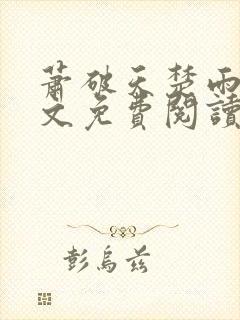 蕭破天楚雨
文免費閱讀
彭烏茲